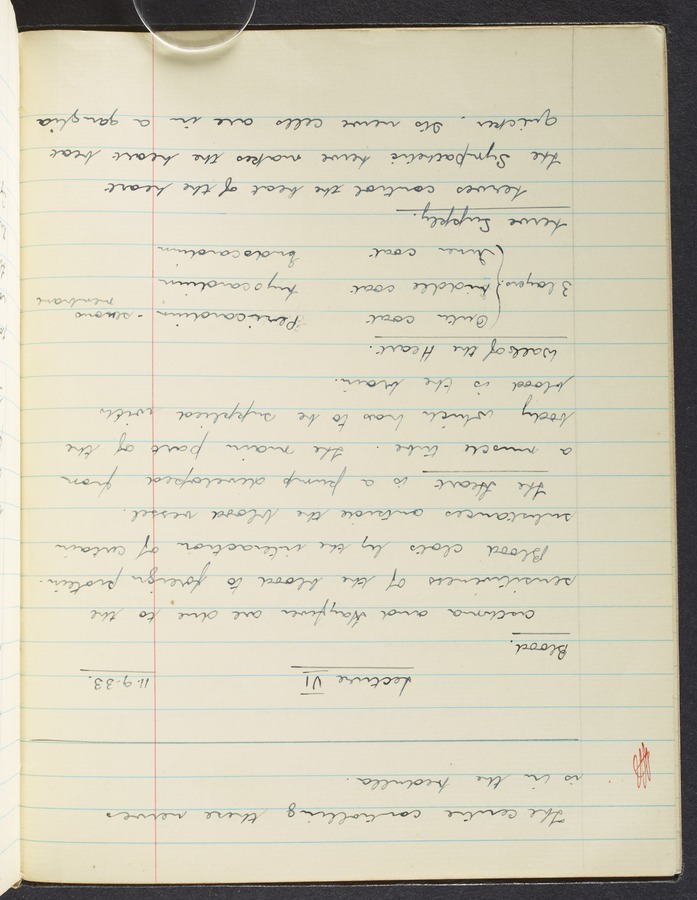 The centre controlling these nerves
is in the medulla.
Lecture VI 11-9-33.
Blood.
asthma and Hayfever are due to the
sensitiveness of the blood to foreign protein.
Blood clots by the interaction of certain
substances outside the blood vessel.
The Heart is a pump developed from
a muscle tube. The main part of the
body which has to be supplied with
blood is the brain.
Walls of the Heart.
Outer coat Pericardium - serous
membrane
3 layers. middle coat Myocardium
Inner coat Endocardium
Nerve Supply.
Nerves control the beat of the heart
The Sympathetic nerve makes the heart beat
quicker. Its nerve cells are in a ganglia